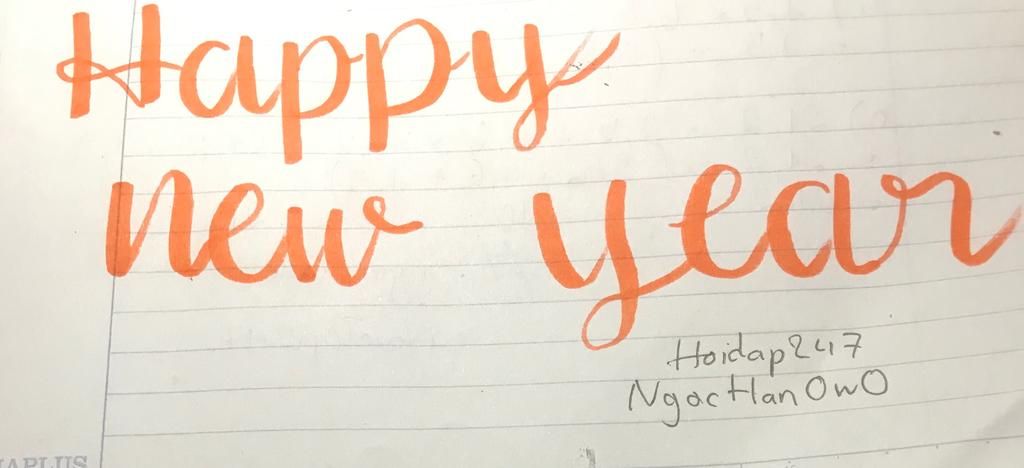 Happy
new year
Hoidap247
NgocHanOwO